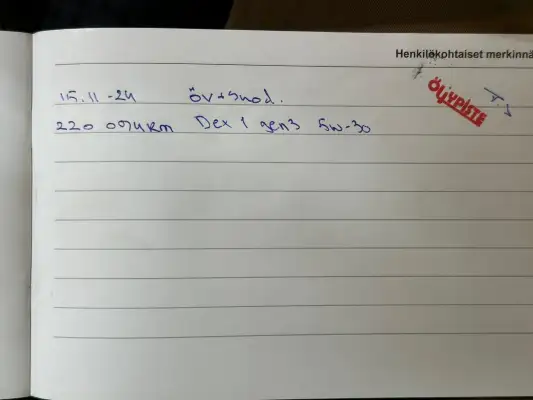 Henkilökohtaiset merkinnä
ÖLJYPISTE
15.11-24 öv+suod.
220 094km Dex 1 gen3 5w-30